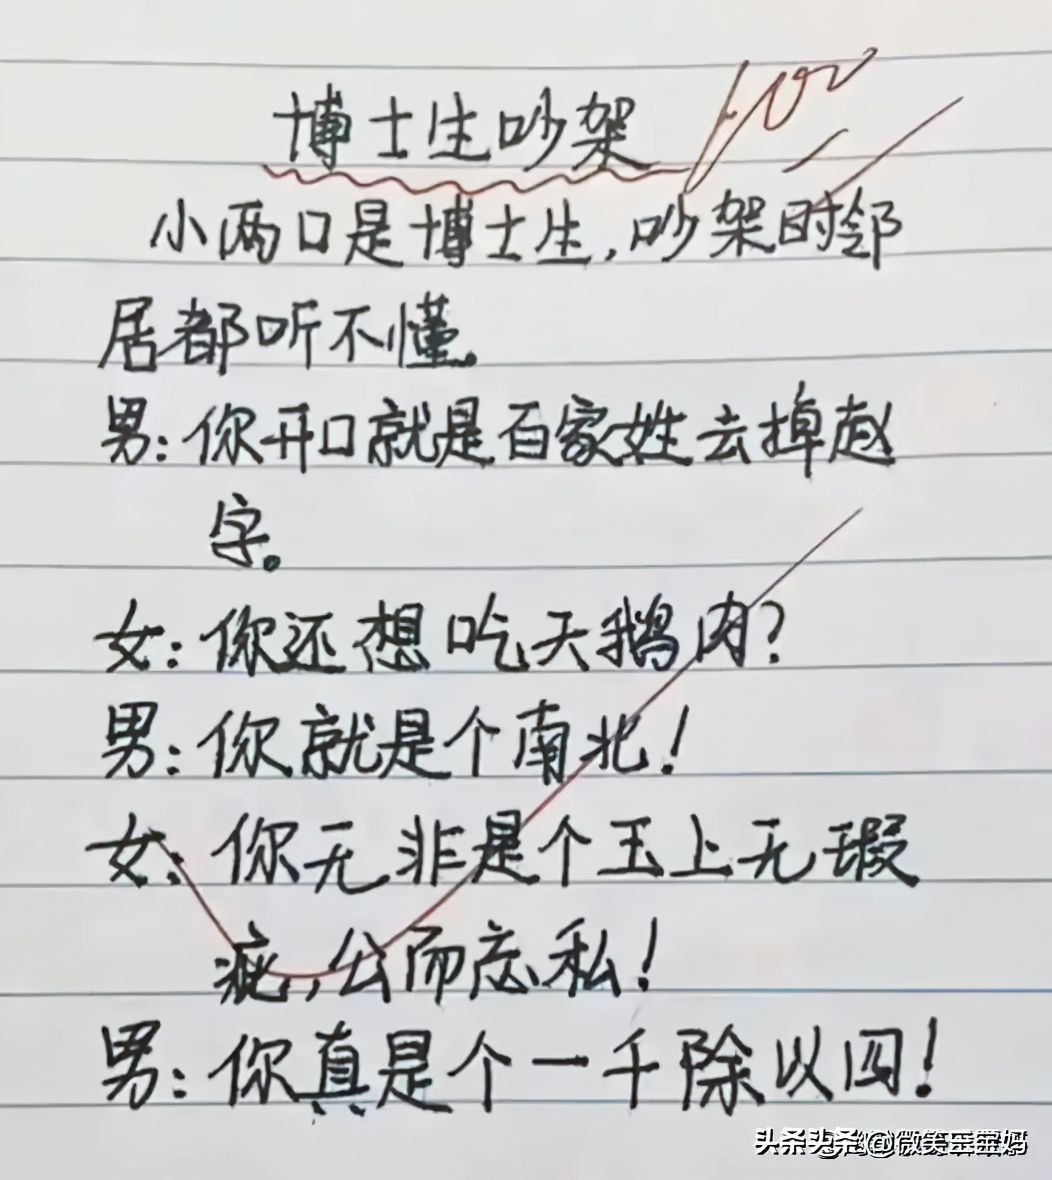 博士生吵架
小两口是博士生,吵架时邻
居都听不懂。
男:你开口就是百家姓去掉赵
字。
女:你还想吃天鹅肉?
男:你就是个南北!
女:你无非是个玉上无瑕
疵,公而忘私!
男:你真是个一千除以四!
头条 @微笑